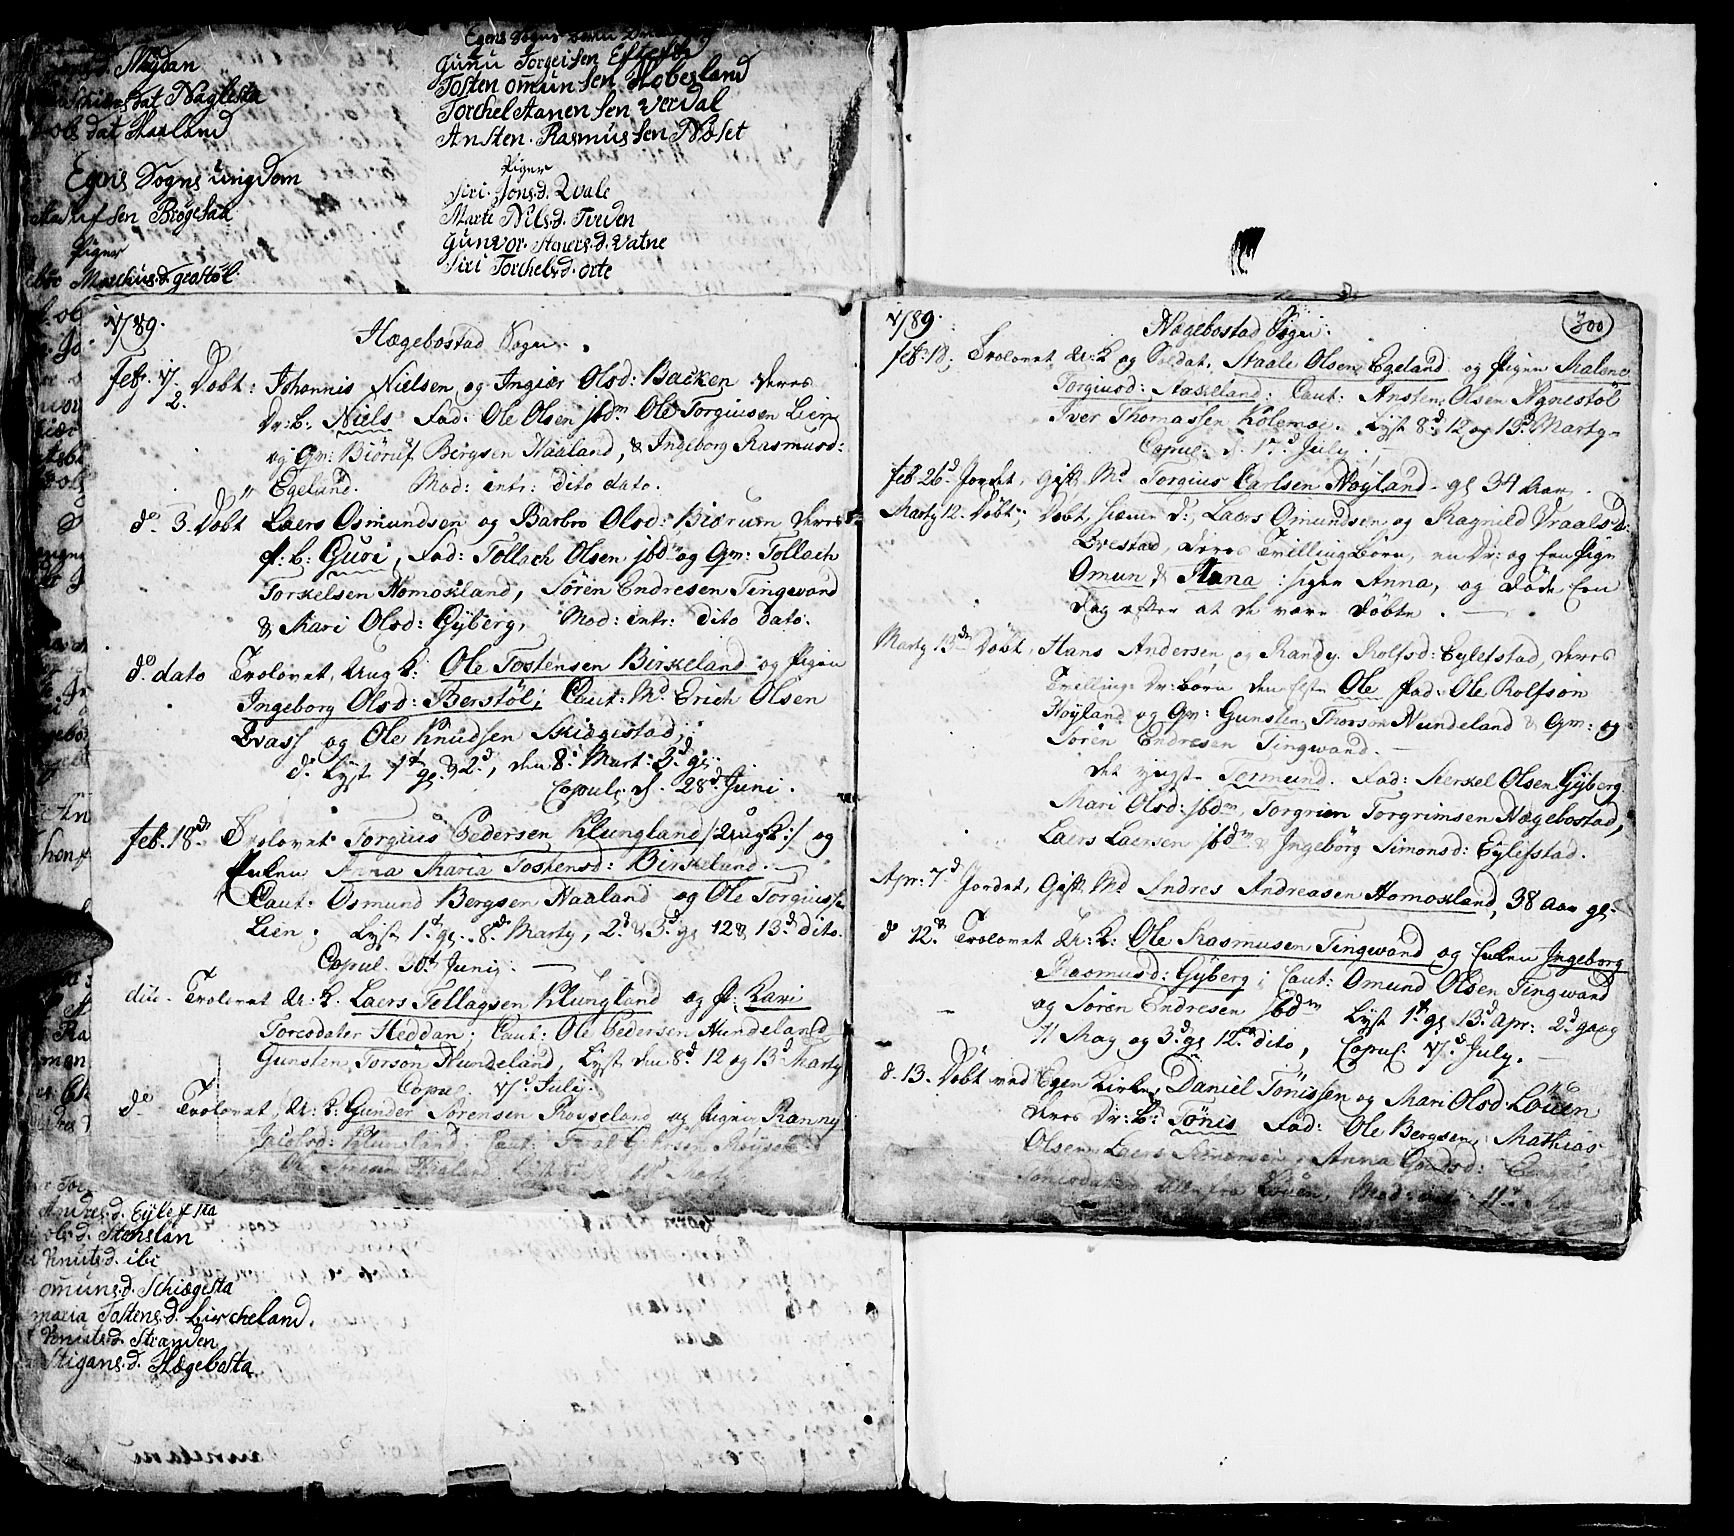 Mÿdan
dat Naglesta
ols dat Haaland
Egens Sogns ungdom
sen Brøgesaa
Piger
Marchus.d. geastøl
Gunu Torgeisen Eftesta
Tosten omunsen Hobesland
Torchel Aanensen Verdal
Ansten Rasmussen Noset
Piger
Siri Jons.d. Qvale
Marte Nils.d. Tveden
Gunvor Steners.d. Vatne
Siri Torchels.d. orte
1789.
Hægebostad Sogn.
Febr. 1. Døbt: Johannis Nielsen og Ingiær Olsd: Backen deres
2. Dr: b: Niels Fad: Ole Olsen ibdm Ole Torgiusen Lien
og Gm: Biöruf Bergsen Haaland, & Ingeborg Rasmusd:
Egeland. Mod: intr: dito dato.
do 3. Døbt Laers Osmundsen og Barbro Olsd: Biörum deres
p: b: Guri, Fad: Tollach Olsen ibd og Gm: Tollach
Torkelsen Homosland, Sören Endresen Tingvand
& Mari Olsd: Gÿberg, Mod: intr: dito dato.
do. dato Trolovet, Ung k: Ole Tostensen Birkeland og Pigen
Ingeborg Olsd: Berstöl; Caut: Md Erich Olsen
Qvass og Ole Knudsen Skiæggistad,
do Lyst 1t g. & 2d, den 8: Mart: 3d g:
Copul: d. 28d Juni.
feb. 18de Trolovet Torgius Pedersen Klungland /: Ung k :/ og
Enken Anna Maria Tostensd: Birkeland.
Caut: Osmund Bergsen Haaland og Ole Torgiuss:
Lien; Lyst 1t g. 8d Marty, 2d & 3d g 12 & 13d dito.
Copul. 30t Junij.
dito Trolovet Ur: k. Laers Tellagsen Klungland og p: Kari
Toresdater Heddan; Caut: Ole Pedersen Hundeland
Gunsten Torsön Hundeland, Lyst den 8d 12 og 13d Marty
Copul. 7d Juli.
do Trolovet, Ur: k: Gunder Sörensen Röysseland og Pigen Ranny
Jacobsd: Klungland; Caut:
Andres.d. Eÿlefsta
ols.d. Stenslan
Knuts.d. ibi
omuns.d. Schiægesta
maria Tostens.d. Bircheland.
Knuts.d. Stranden
Stigans.d. Hægebosta
1789.
Hægebostad Sogn.
300
feb. 18. Trolovet Ur: k og Soldat, Staale Olsen Egeland og Pigen Malene
Torgiusd: Naskeland: Caut: Ansten Olsen Agnestöl
Iver Thomassen Kolemo. Lyst 8d 12 og 13d Marty
Copul: d. 1d July.
feb. 26d Jordet, Gift Md Torgius Carlsen Höyland g 34 Aar.
Marty 12. Døbt, Døbt hiemme d:, Laers Omundsen og Ragnild Draalsd:
Brestad, deres Tvilling börn, en Dr: og en Pige
Omun & Anna: sige Anna, og døde en
dag efter at de vare døbte.
Marty 13d Døbt, Hans Andersen og Randy Rolfsd: Eylefstad, deres
Tvillinge Dr: börn den elste Ole Fad: Ole Rolfsön
Höyland og Gm: Gunsten Thorsön Hundeland & Gm: og
Sören Endresen Tingvand.
Det yngste Tormund. Fad: Aerkel Olsen Gÿberg
Mari Olsd: ibdm, Torgrim Torgrimsen Hægebostad,
Laers Laersen ibdm & Ingebörg Simonsd: Eylefstad.
Apr: 7d Jordet, Gift Md Andres Andreasen Homosland, 38 aar g
d 12te Trolovet Ur: k: Ole Rasmusen Tingvand og Enken Ingeborg
Rasmusd: Gÿberg; Caut: Omund Olsen Tingvand
og Sören Endresen ibdm Lyst 1t g 13d Apr: 2d gang
11 May og 3d g 12te dito, Copul. 7d July.
d. 13. Døbt ved Egen Kirke, Daniel Tönissen og Mari Olsd Löuen
deres Dr: b: Tönis Fad: Ole Bergsen, Mathias
Olsen, Laers Simonsen, Anna
alle fra Löuen, Mod: intr: 11te